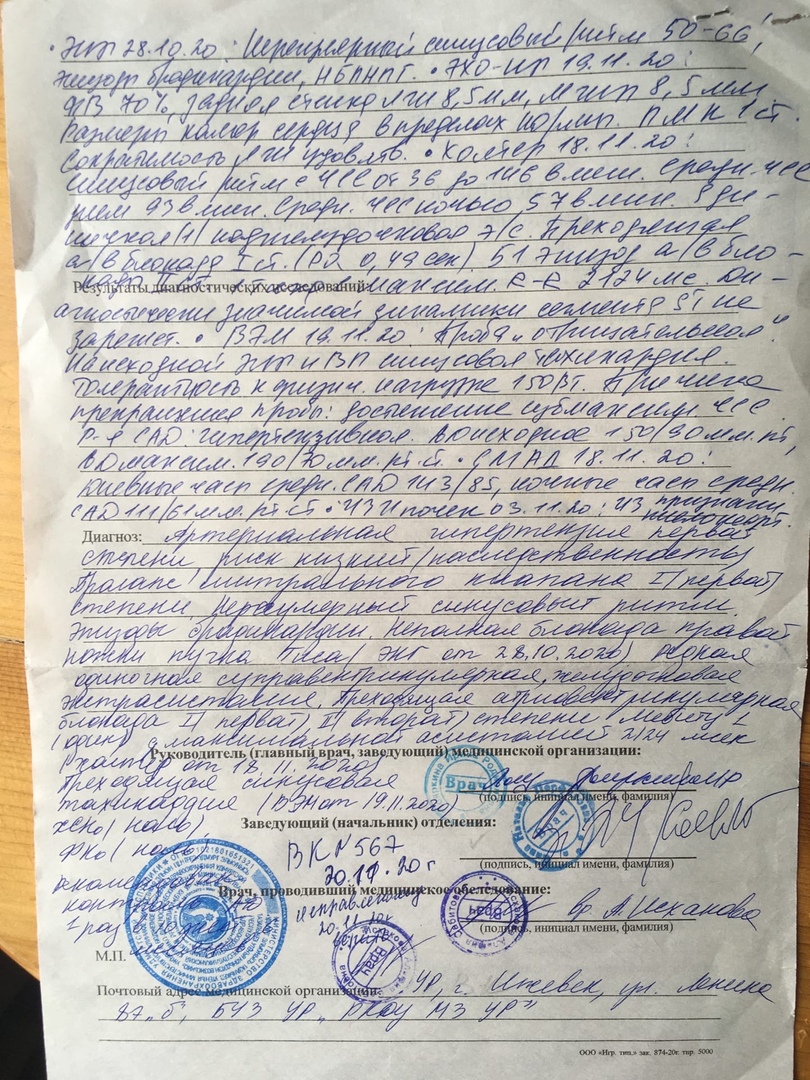 • ЭКГ 28.10.20: Нерегулярный синусовый ритм 50-66',
эпизоды брадикардии, НБПНПГ. • ЭХО-КГ 19.11.20:
ФВ 70%, задняя стенка ЛЖ 8,5мм, МЖП 8,5мм
Размеры камер сердца в пределах нормы. ПМК 1 ст.
Сократимость ЛЖ удовлетв. • Холтер 18.11.20:
синусовый ритм с ЧСС от 36 до 146 в мин. Средн. ЧСС
днем 93 в мин. Средн. ЧСС ночью 57 в мин. Еди-
ничная (1) наджелудочковая э/с. Преходящая
а/в блокада I ст. (PQ 0,49 сек). 51 эпизод а/в бло-
Результаты диагностических исследований: максим. R-R 2124 мс. Ди-
агностически значимой динамики сегмента ST не
зарегист. • ВЭМ 19.11.20: Проба „отрицательная".
На исходной ЭКГ и ВП синусовая тахикардия.
Толерантность к физич. нагрузке 150 Вт. Причина
прекращения пробы: достижение субмаксим. ЧСС
Р-я САД: гипертензивная. АД исходное 150/90 мм.рт,
АД максим. 190/70 мм.рт.ст. • СМАД 18.11.20:
дневные часы средн. САД 143/85, ночные часы средн.
САД 111/61 мм.рт.ст. • УЗИ почек 03.11.20: УЗ признаки
Диагноз: Артериальная гипертензия первой
степени, риск низкий (наследственность)
Пролапс митрального клапана I (первой)
степени. Нерегулярный синусовый ритм.
Эпизоды брадикардии. Неполная блокада правой
ножки пучка Гиса (ЭКГ от 28.10.2020) Редкая
одиночная суправентрикулярная, желудочковая
экстрасистолия. Преходящая атриовентрикулярная
блокада I (первой) II (второй) степени Мобитц 1
(один) с максимальной асистолией 2124 мсек
Руководитель (главный врач, заведующий) медицинской организации:
(Холтер от 18.11.2020)
Преходящая синусовая
тахикардия (ВЭМ от 19.11.2020)
(подпись, инициал имени, фамилия)
Врач
Заведующий (начальник) отделения:
ВК №567
20.11.20г
(подпись, инициал имени, фамилия)
Врач, проводивший медицинское обследование:
20.11.20г
вр. А. Исханова
(подпись, инициал имени, фамилия)
Врач
М.П.
Почтовый адрес медицинской организации: УР, г. Ижевск, ул. Ленина
87„б", БУЗ УР „РКДЦ МЗ УР"
ООО «Игр. тип.» зак. 874-20г. тир. 5000